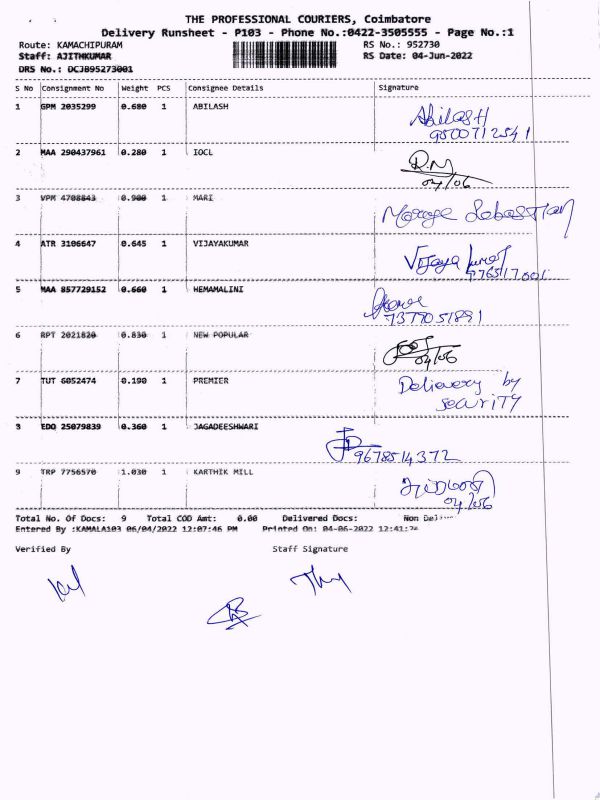 THE PROFESSIONAL COURIERS, Coimbatore
Delivery Runsheet - P103 - Phone No.:0422-3505555 - Page No.:1
Route: KAMACHIPURAM RS No.: 952730
Staff: AJITHKUMAR RS Date: 04-Jun-2022
DRS No.: DCJB95273001
S No Consignment No Weight PCS Consignee Details Signature
1 GPM 2035299 0.680 1 ABILASH Abilash
9500712541
2 MAA 290437961 0.280 1 IOCL R.M
04/06
3 VPM 4708843 0.900 1 MARI Sebastian
4 ATR 3106647 0.645 1 VIJAYAKUMAR Vijaya kumar
5 MAA 857729152 0.660 1 HEMAMALINI
6 RPT 2021820 0.830 1 NEW POPULAR
04/06
7 TUT 6052474 0.190 1 PREMIER Delievery by
security
8 EDO 25079839 0.360 1 JAGADEESHWARI
9678514372
9 TRP 7756570 1.030 1 KARTHIK MILL
04/06
Total No. Of Docs: 9 Total COD Amt: 0.00 Delivered Docs: Non
Entered By :KAMALA103 06/04/2022 12:07:46 PM Printed On: 04-06-2022 12:41:
Verified By Staff Signature